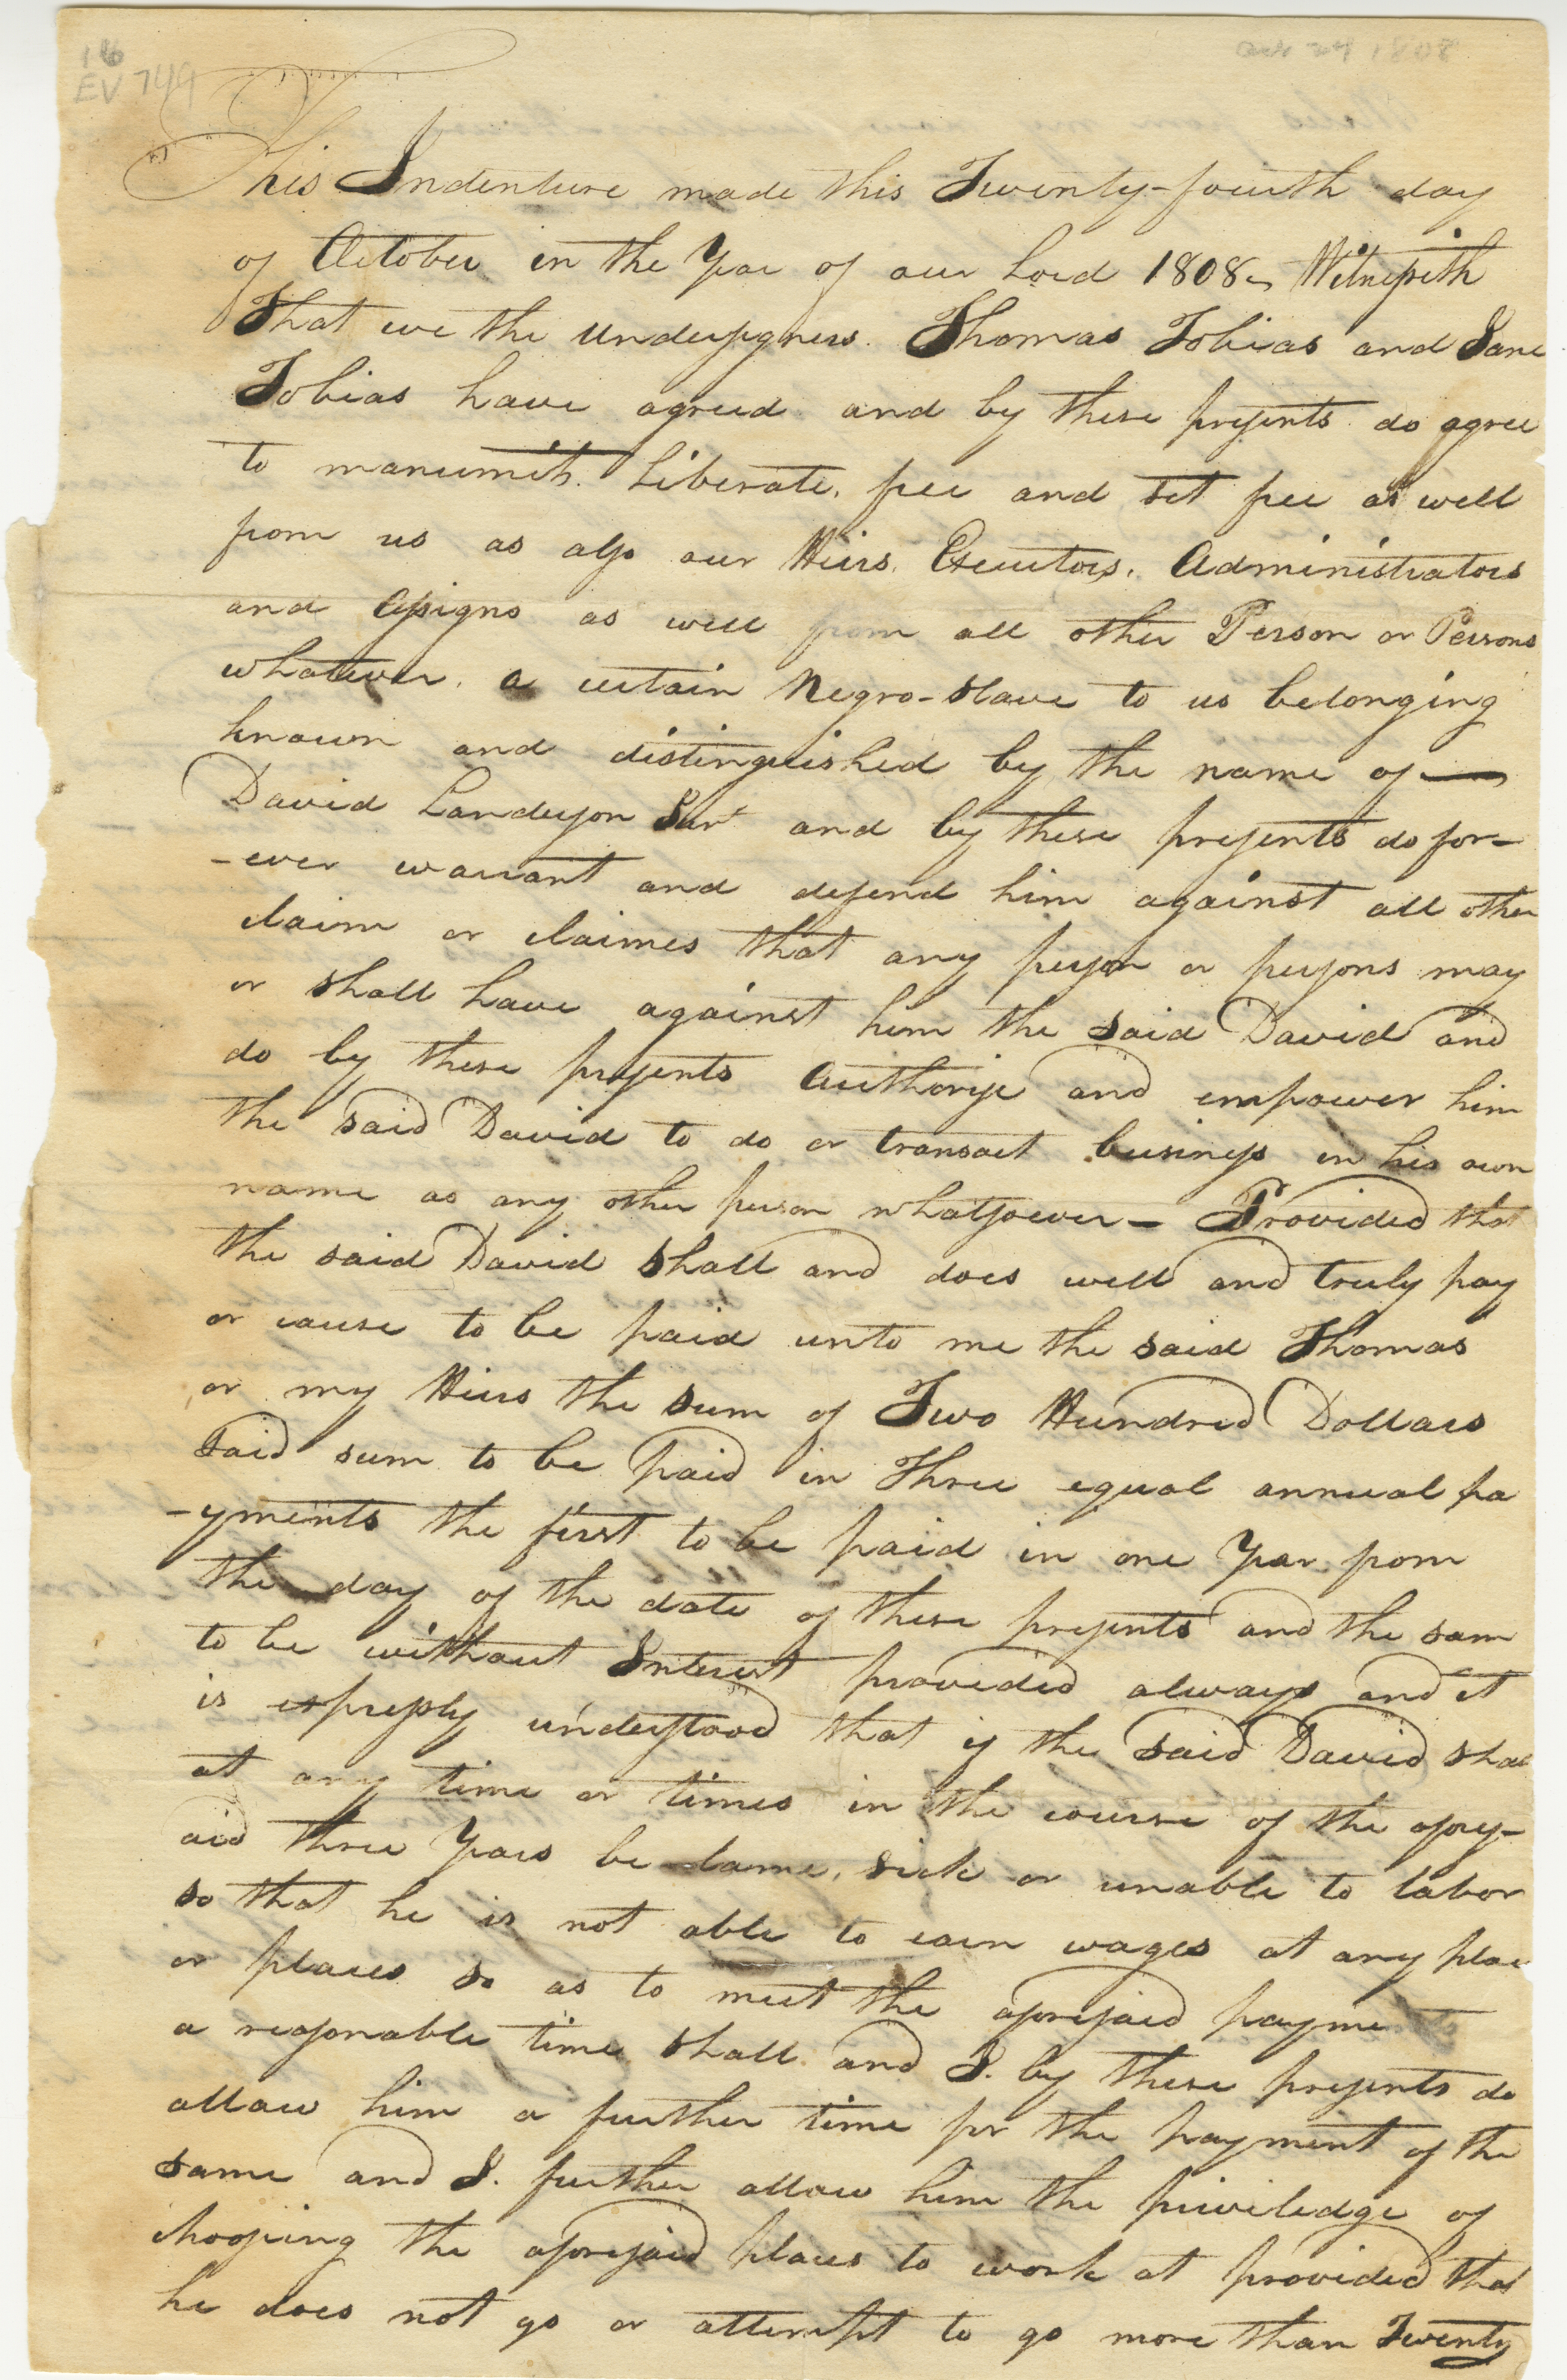 16
EV 749
Oct 24 1808
This Indenture made this Twenty-fourth day
of October in the Year of our Lord 1808 Witnesseth
That we the Undersigners. Thomas Tobias and Jane
Tobias have agreed and by these presents do agree
to manumit. Liberate, free and set free as well
from us as also our Heirs, Executors, Administrators
and Assigns as well from all other Person or Persons
whatever, a certain Negro-Slave to us belonging
known and distinguished by the name of —
David Landerson and by these presents do for-
-ever warrant and defend him against all other
claim or claimes that any person or persons may
or shall have against him the said David and
do by these presents Authorise and empower him
the said David to do or transact business in his own
name as any other person whatsoever — Provided that
the said David shall and does well and truly pay
or cause to be paid unto me the said Thomas
or my Heirs the sum of Two Hundred Dollars
said sum to be paid in Three equal annual pa
-yments the first to be paid in one Year from
the day of the date of these presents and the sam
to be without Interest provided always and it
is expressly understood that if the said David shall
at any time or times in the course of the afores-
aid three Years be lame, sick or unable to labor
so that he is not able to earn wages at any place
or places so as to meet the aforesaid payme
a reasonable time shall and I. by these presents do
allow him a further time for the payment of the
same and I. further allow him the priviledge of
choosing the aforesaid places to work at provided that
he does not go or attempt to go more than Twenty